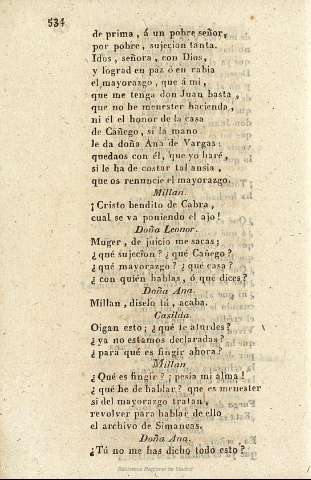 534
de prima, á un pobre señor,
por pobre, sujecion tanta.
Idos, señora, con Dios,
y lograd en paz ó en rabia
el mayorazgo, que á mi,
que me tenga don Juan basta,
que no he menester hacienda,
ni él el honor de la casa
de Cañego, si la mano
le da doña Ana de Vargas:
quedaos con él, que yo haré,
si le ha de costar tal ansia,
que os renuncie el mayorazgo.
Millan.
¡Cristo bendito de Cabra,
cual se va poniendo el ajo!
Doña Leonor.
Muger, de juicio me sacas;
¿qué sujecion? ¿qué Cañego?
¿qué mayorazgo? ¿qué casa?
¿con quién hablas, ó qué dices?
Doña Ana.
Millan, diselo tú, acaba.
Casilda
Oigan esto; ¿qué te aturdes?
¿ya no estamos declaradas?
¿para qué es fingir ahora?
Millan
¿Qué es fingir? ¡pesia mi alma!
¿qué he de hablar? que es menester
si del mayorazgo tratan,
revolver para hablar de ello
el archivo de Simancas.
Doña Ana.
¿Tú no me has dicho todo esto?
Biblioteca Regional de Madrid